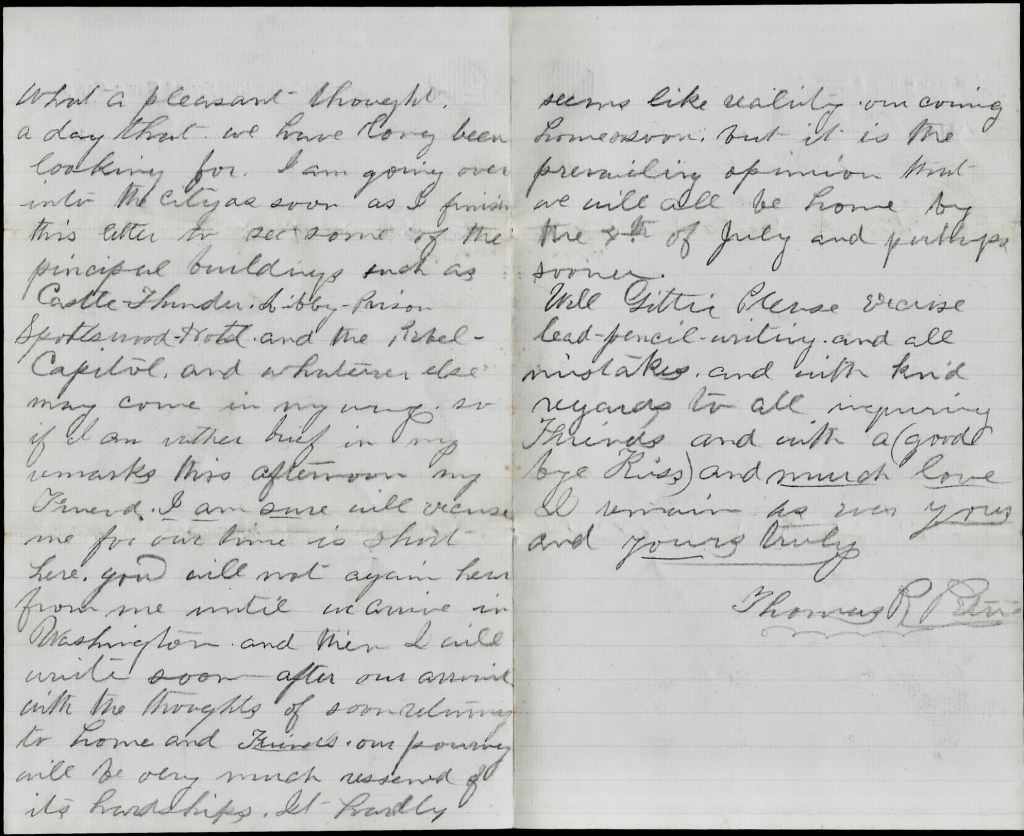 What a pleasant thought.
a day that we have long been
looking for. I am going over
into the city as soon as I finish
this letter to see some of the
pincipal buildings such as
Castle-Thunder. Libby-Prison
Spottswood-Hotel. and the Rebel-
Capitol. and whatever else
may come in my way. so
if I am rather brief in my
remarks this afternoon my
Friend. I am sure will excuse
me for our time is short
here. you will not again hear
from me until we arrive in
Washington. and then I will
write soon after our arrival
with the thoughts of soon returning
to home and Friends. our journey
will be very much of
its hardships. It hardly
seems like reality. our coming
home so soon. but it is the
prevailing opinion that
we will all be home by
the 4th of July and perhaps
sooner.
Well Gittie Please excuse
lead-pencil-writing. and all
mistakes. and with kind
regards to all inquiring
Friends and with a (good
bye Kiss) and much love
I remain as ever yours
and yours truly
Thomas R Petrie